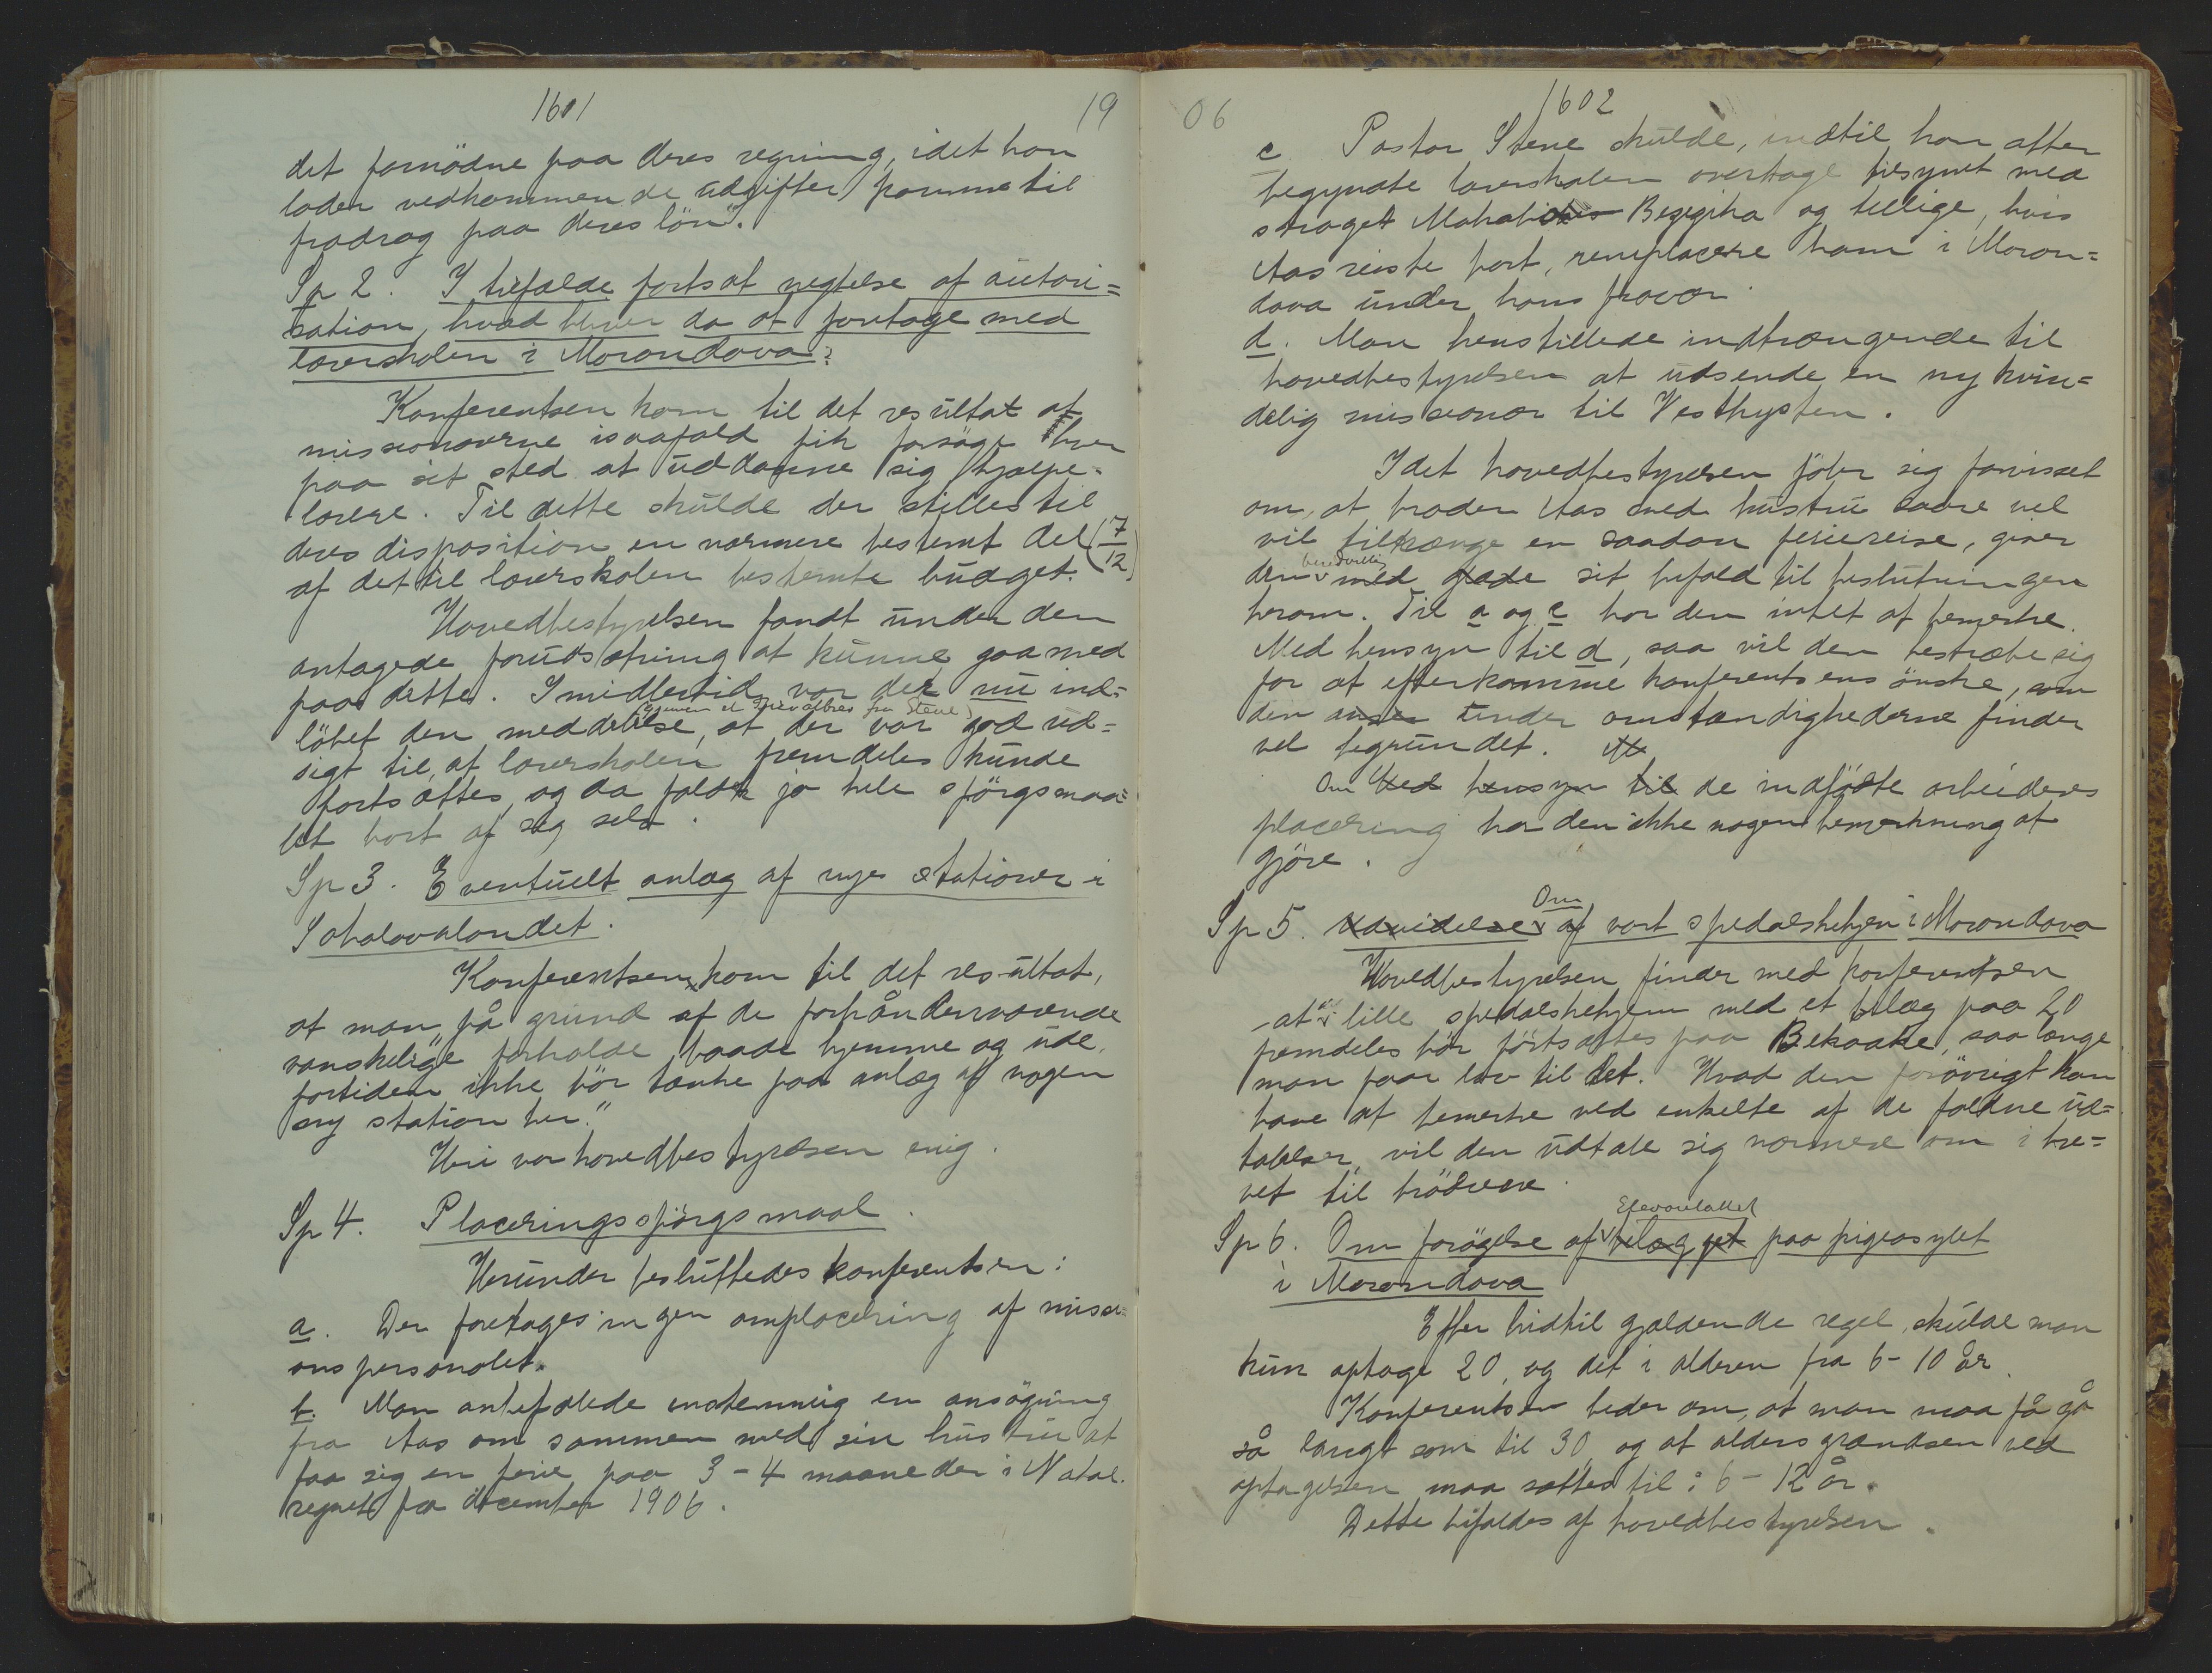 1601
19
det fornödne paa deres regning, idet han
lader vedkommende udgifter komme til
fradrag paa deres lön".
Sp 2. I tilfælde fortsat negtelse af autori=
sation, hvad bliver da at foretage med
lærerskolen i Morondava?
Konferentsen kom til det resultat at
missionærerne isaafald fik forsöge hver
paa sit sted at uddanne sig hjælpe-
lærere. Til dette skulde der stilles til
deres disposition en nærmere bestemt del (7/12)
af det til lærerskolen bestemte budget.
Hovedbestyrelsen fandt under den
antagede forudsætning at kunne gaa med
paa dette. Imidlertid var der nu ind=
(gjennem et privatbrev fra Stene)
löbet den meddelelse, at der var god ud=
sigt til, at lærerskolen fremdeles kunde
fortsættes, og da falder jo hele spörgsmaa=
let bort af sig selv.
Sp 3. Eventuelt anlæg af nye stationer i
Sakalavalandet.
Konferentsen kom til det resultat,
at man "på grund af de forhåndenværende
vanskelige forholde baade hjemme og ude,
fortiden ikke bör tænke paa anlæg af nogen
ny station her."
Heri var hovedbestyrelsen enig.
Sp 4. Placeringsspörgsmaal.
Herunder besluttedes konferentsen:
a. Der foretages ingen omplacering af missi=
onspersonalet.
b. Man anbefalede enstemmig en ansögning
fra Aas om sammen med sin hustru at
faa sig en ferie paa 3-4 maaneder i Natal.
regnet fra december 1906.
06
1602
c. Pastor Stene skulde, indtil han atter
begyndte lærerskolen overtage tilsynet med
strøget Mahabo Bezezika og tillige, hvis
Aas reiste bort, remplacere ham i Moron=
dava under hans fravær.
d. Man henstillede indtrængende til
hovedbestyrelsen at udsende en ny kvin=
delig missionær til Vestkysten.
Idet hovedbestyrelsen föler sig forvisset
om, at broder Aas med hustru saare vel
vil tiltrænge en saadan feriereise, giver
beredvillig
den med glæde sit bifald til beslutningen
herom. Til a og c har den intet at bemerke.
Med hensyn til d, saa vil den bestræbe sig
for at efterkomme konferentsens önske, som
den anser under omstændighederne finder
vel begrundet.
Om Ved hensyn til de indfödte arbeideres
placering har den ikke nogen bemerkning at
gjöre.
Om
Sp 5. Udvidelse af vort spedalskehjem i Morondava
Hovedbestyrelsen finder med konferentsen
at et lille spedalskehjem med et belæg paa 20
fremdeles bör fortsættes paa Bekoake, saa længe
man faar lov til det. Hvad den forövrigt kan
have at bemerke ved enkelte af de faldne ud=
talelser, vil den udtale sig nærmere om i bre=
vet til brödrene.
Elevantallet
Sp 6. Om forögelse af belægget paa pigeasylet
i Morondava
Efter hidtil gjældende regel skulde man
kun optage 20, og det i alderen fra 6-10 år.
Konferentsen beder om, at man maa få gå
så langt som til 30, og at aldersgrændsen ved
optagelsen maa sættes til: 6-12 år.
Dette bifaldes af hovedbestyrelsen.